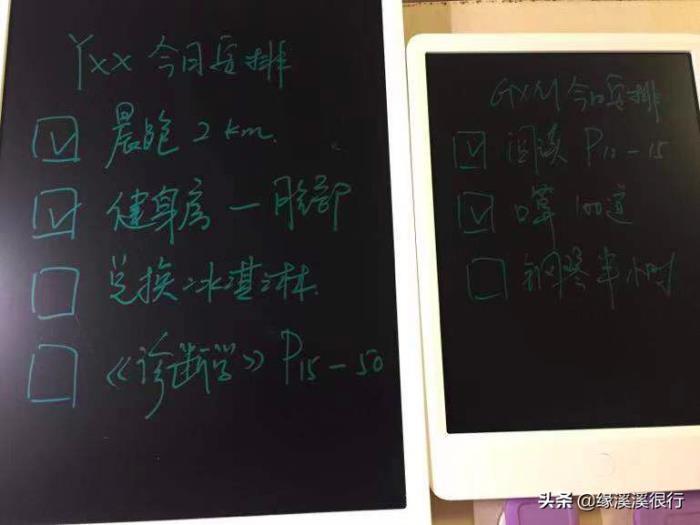 Yxx 今日安排
晨跑 2 km.
健身房 — 胸部
兑换冰淇淋.
《诊断学》 P15-50
今日安排
阅读 P10-15
口算 100道
钢琴半小时
头条 @缘溪溪很行